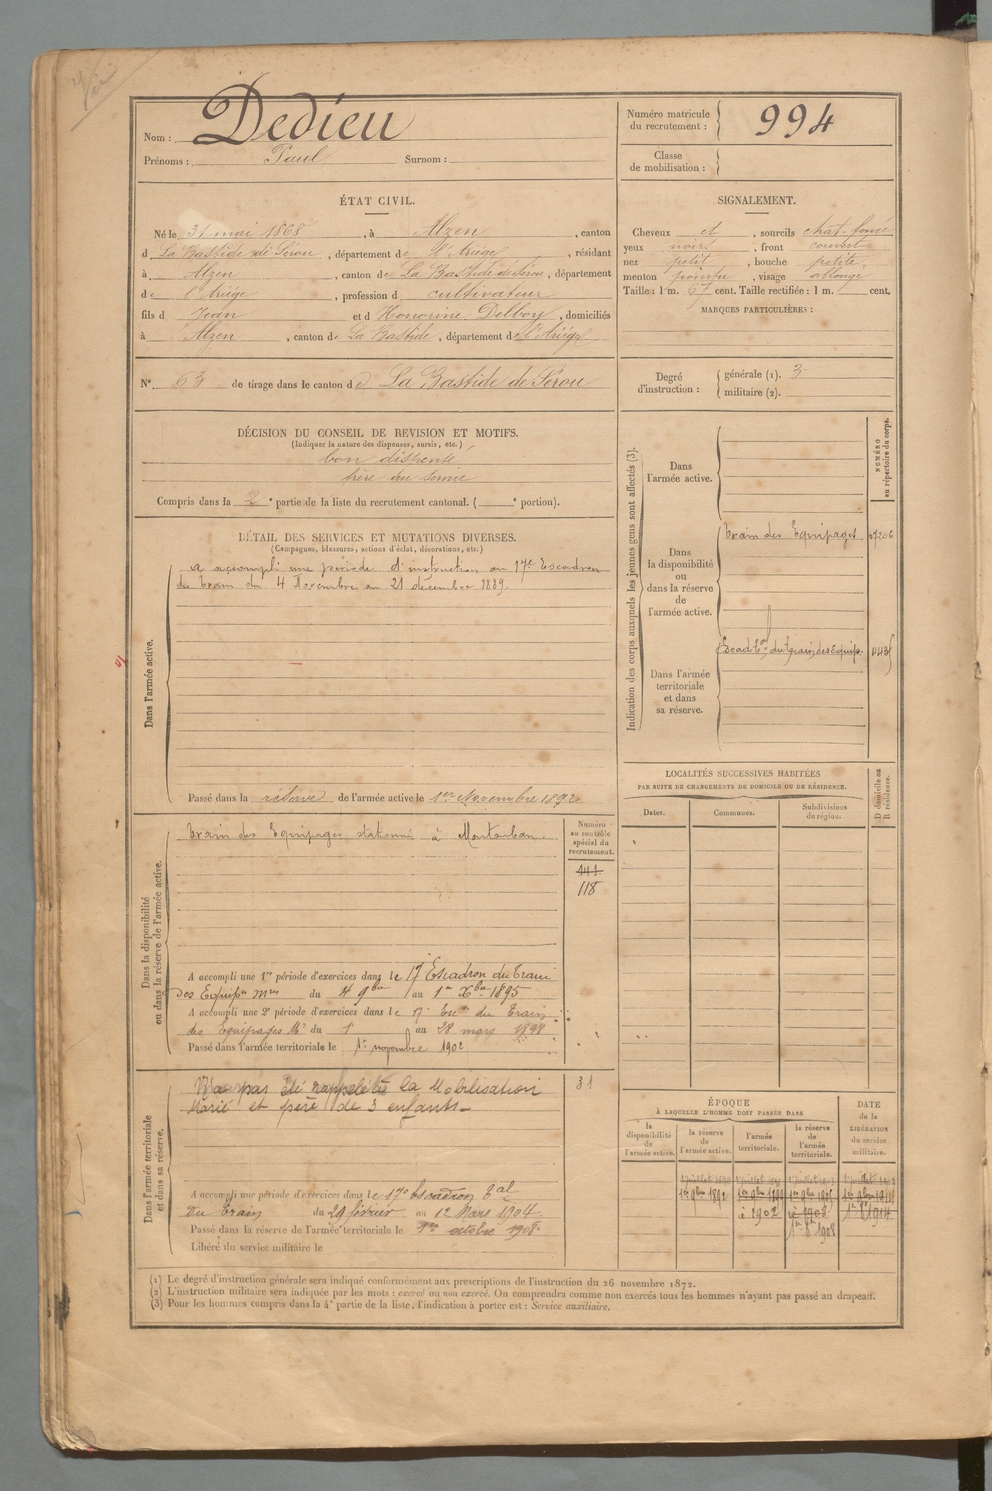 Nom : Dedieu
Prénoms : Paul Surnom :
Numéro matricule du recrutement : 994
Classe de mobilisation :
ÉTAT CIVIL.
Né le 31 mai 1868, à Alzen, canton
d La Bastide de Sérou, département de l'Ariège, résidant
à Alzen, canton de La Bastide de Sérou, département
de l'Ariège, profession d cultivateur
fils d Jean et d Honorine Delboy, domiciliés
à Alzen, canton de La Bastide, département de l'Ariège
N° 63 de tirage dans le canton de La Bastide de Sérou
SIGNALEMENT.
Cheveux et, sourcils chat. foncé
yeux noirs, front couvert
nez petit, bouche petite
menton pointu, visage allongé
Taille : 1 m. 67 cent. Taille rectifiée : 1 m. cent.
MARQUES PARTICULIÈRES :
Degré d'instruction : générale (1). 3
militaire (2).
DÉCISION DU CONSEIL DE REVISION ET MOTIFS.
(Indiquer la nature des dispenses, sursis, etc.)
bon dispensé
frère au service
Compris dans la 2e partie de la liste du recrutement cantonal. ( e portion).
DÉTAIL DES SERVICES ET MUTATIONS DIVERSES.
(Campagnes, blessures, actions d'éclat, décorations, etc.)
Dans l'armée active.
A accompli une période d'instruction au 17e Escadron
du train du 4 Novembre au 21 décembre 1889.
Passé dans la réserve de l'armée active le 1er Novembre 1892
Indication des corps auxquels les jeunes gens sont affectés (3).
NUMÉRO au répertoire du corps.
Dans l'armée active.
Dans la disponibilité ou dans la réserve de l'armée active.
Train des Equipages
Dans l'armée territoriale et dans sa réserve.
Escad. tal du Train des Equip.
LOCALITÉS SUCCESSIVES HABITÉES
PAR SUITE DE CHANGEMENTS DE DOMICILE OU DE RÉSIDENCE.
D domicile ou R résidence.
Dates. Communes. Subdivisions de région.
Dans la disponibilité ou dans la réserve de l'armée active.
Train des Equipages stationné à Montauban.
Numéro au contrôle spécial du recrutement.
441
118
A accompli une 1re période d'exercices dans le 17e Escadron du Train
des Equip. mres du 4 9bre au 1er Xbre 1895
A accompli une 2e période d'exercices dans le 17e Esc. du Train
des Equipages Mres du 1 au 28 mars 1898
Passé dans l'armée territoriale le 1er novembre 1902
Dans l'armée territoriale et dans sa réserve.
N'a pas été rappelé à la Mobilisation
Marié et père de 3 enfants
31
A accompli une période d'exercices dans le 17e Escadron Tal
du Train du 29 février au 12 Mars 1904
Passé dans la réserve de l'armée territoriale le 1er octobre 1908
Libéré du service militaire le
ÉPOQUE
À LAQUELLE L'HOMME DOIT PASSER DANS
DATE de la LIBÉRATION du service militaire.
la disponibilité de l'armée active. la réserve de l'armée active. l'armée territoriale. la réserve de l'armée territoriale.
1er 9bre 1892 1er 9bre 1899 1er 9bre 1905 1er 9bre 1911
1902 1908 1914
1908
(1) Le degré d'instruction générale sera indiqué conformément aux prescriptions de l'instruction du 26 novembre 1872.
(2) L'instruction militaire sera indiquée par les mots : exercé ou non exercé. On comprendra comme non exercés tous les hommes n'ayant pas passé au drapeau.
(3) Pour les hommes compris dans la 4e partie de la liste, l'indication à porter est : Service auxiliaire.